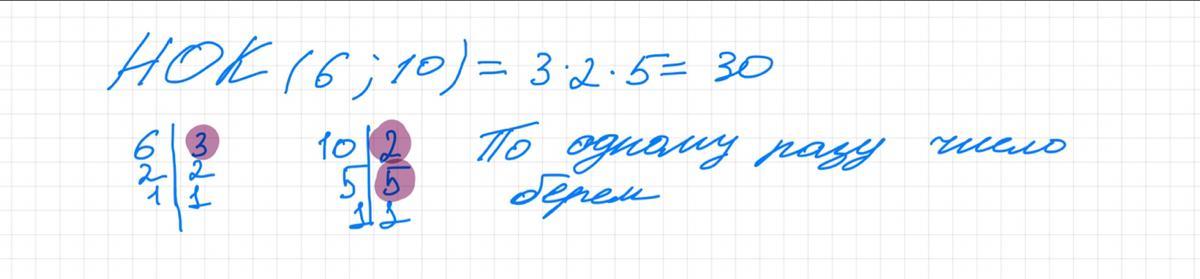 НОК (6 ; 10) = 3 · 2 · 5 = 30
6 | 3 10 | 2 По одному разу число
2 | 2 5 | 5 берем
1 | 1 1 | 1